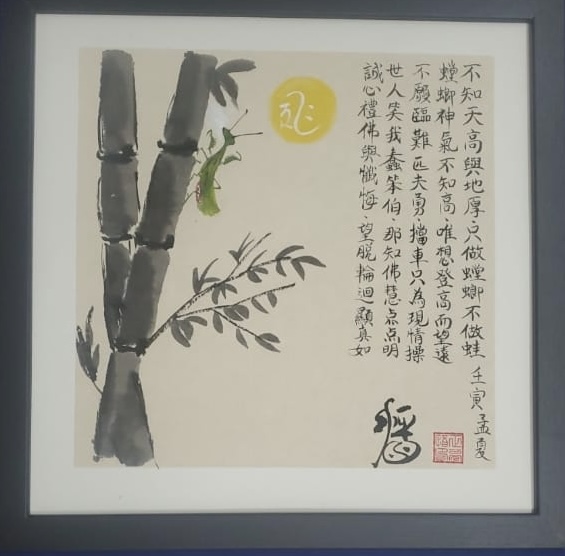 不知天高與地厚,只做螳螂不做蛙
螳螂神氣不知高,唯想登高而望遠
不廢臨難匹夫勇,擋車只為現情操
世人笑我蠢笨伯,那知佛慧点点明
誠心禮佛與懺悔,望脫輪迴顯真如
壬寅孟夏